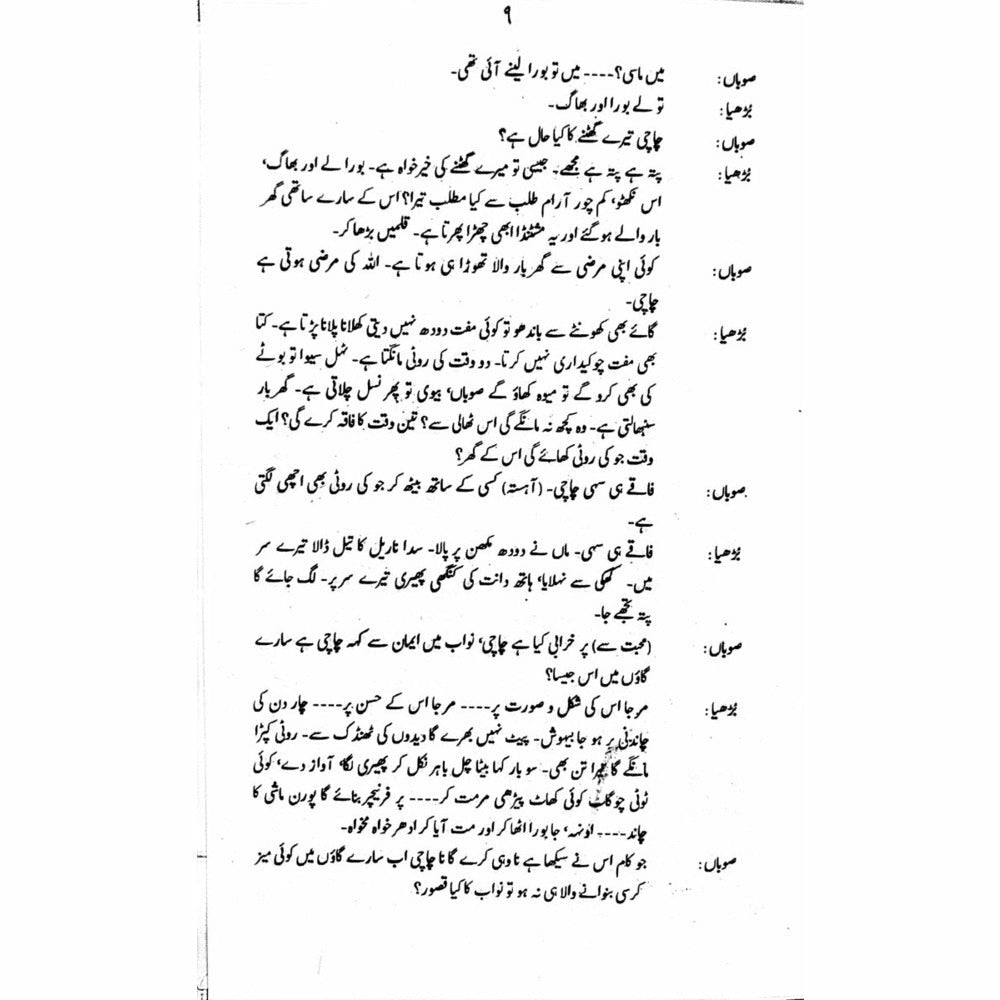 ۹
صوباں: میں ماسی؟---- میں تو بورا لینے آئی تھی۔
بُڑھیا: تو لے بورا اور بھاگ۔
صوباں: چاچی تیرے گھٹنے کا کیا حال ہے؟
بُڑھیا: پتہ ہے پتہ ہے مجھے۔ جیسی تو میرے گھٹنے کی خیر خواہ ہے۔ بورا لے اور بھاگ،
اس نکھٹو، کم چور آرام طلب سے کیا مطلب تیرا؟ اس کے سارے ساتھی گھر
بار والے ہو گئے اور یہ مشٹنڈا ابھی چھڑا پھرتا ہے۔ قلمیں بڑھا کر۔
صوباں: کوئی اپنی مرضی سے گھر بار والا تھوڑا ہی ہوتا ہے۔ اللہ کی مرضی ہوتی ہے
چاچی۔
بُڑھیا: گائے بھی کھونٹے سے باندھو تو کوئی مفت دودھ نہیں دیتی کھلانا پلانا پڑتا ہے۔ کتا
بھی مفت چوکیداری نہیں کرتا۔ دو وقت کی روٹی مانگتا ہے۔ ٹہل سیوا تو بوٹے
کی بھی کرو گے تو میوہ کھاؤ گے صوباں، بیوی تو پھر نسل چلاتی ہے۔ گھر بار
سنبھالتی ہے۔ وہ کچھ نہ مانگے گی اس ٹھالی سے؟ تین وقت کا فاقہ کرے گی؟ ایک
وقت جو کی روٹی کھائے گی اس کے گھر؟
صوباں: فاقے ہی سہی چاچی۔ (آہستہ) کسی کے ساتھ بیٹھ کر جو کی روٹی بھی اچھی لگتی
ہے۔
بُڑھیا: فاقے ہی سہی۔ ماں نے دودھ مکھن پر پالا۔ سدا ناریل کا تیل ڈالا تیرے سر
میں۔ کھکی سے نہلایا، ہاتھ دانت کی کنگھی پھیری تیرے سر پر۔ لگ جائے گا
پتہ تجھے جا۔
صوباں: (محبت سے) پر خرابی کیا ہے چاچی، نواب میں ایمان سے کہہ چاچی ہے سارے
گاؤں میں اس جیسا؟
بُڑھیا: مر جا اس کی شکل و صورت پر---- مر جا اس کے حسن پر---- چار دن کی
چاندنی پر ہو جا بیہوش۔ پیٹ نہیں بھرے گا دیدوں کی ٹھنڈک سے۔ روٹی کپڑا
مانگے گا تیرا تن بھی۔ سو بار کہا بیٹا چل باہر نکل کر پھیری لگا، آواز دے، کوئی
ٹوٹی چوگاٹ کوئی کھاٹ پیڑھی مرمت کر---- پر فرنیچر بنائے گا پورن ماشی کا
چاند---- اونہہ، جا بورا اٹھا کر اور مت آیا کر ادھر خواہ مخواہ۔
صوباں: جو کام اس نے سیکھا ہے نا وہی کرے گا نا چاچی اب سارے گاؤں میں کوئی میز
کرسی بنوانے والا ہی نہ ہو تو نواب کا کیا قصور؟